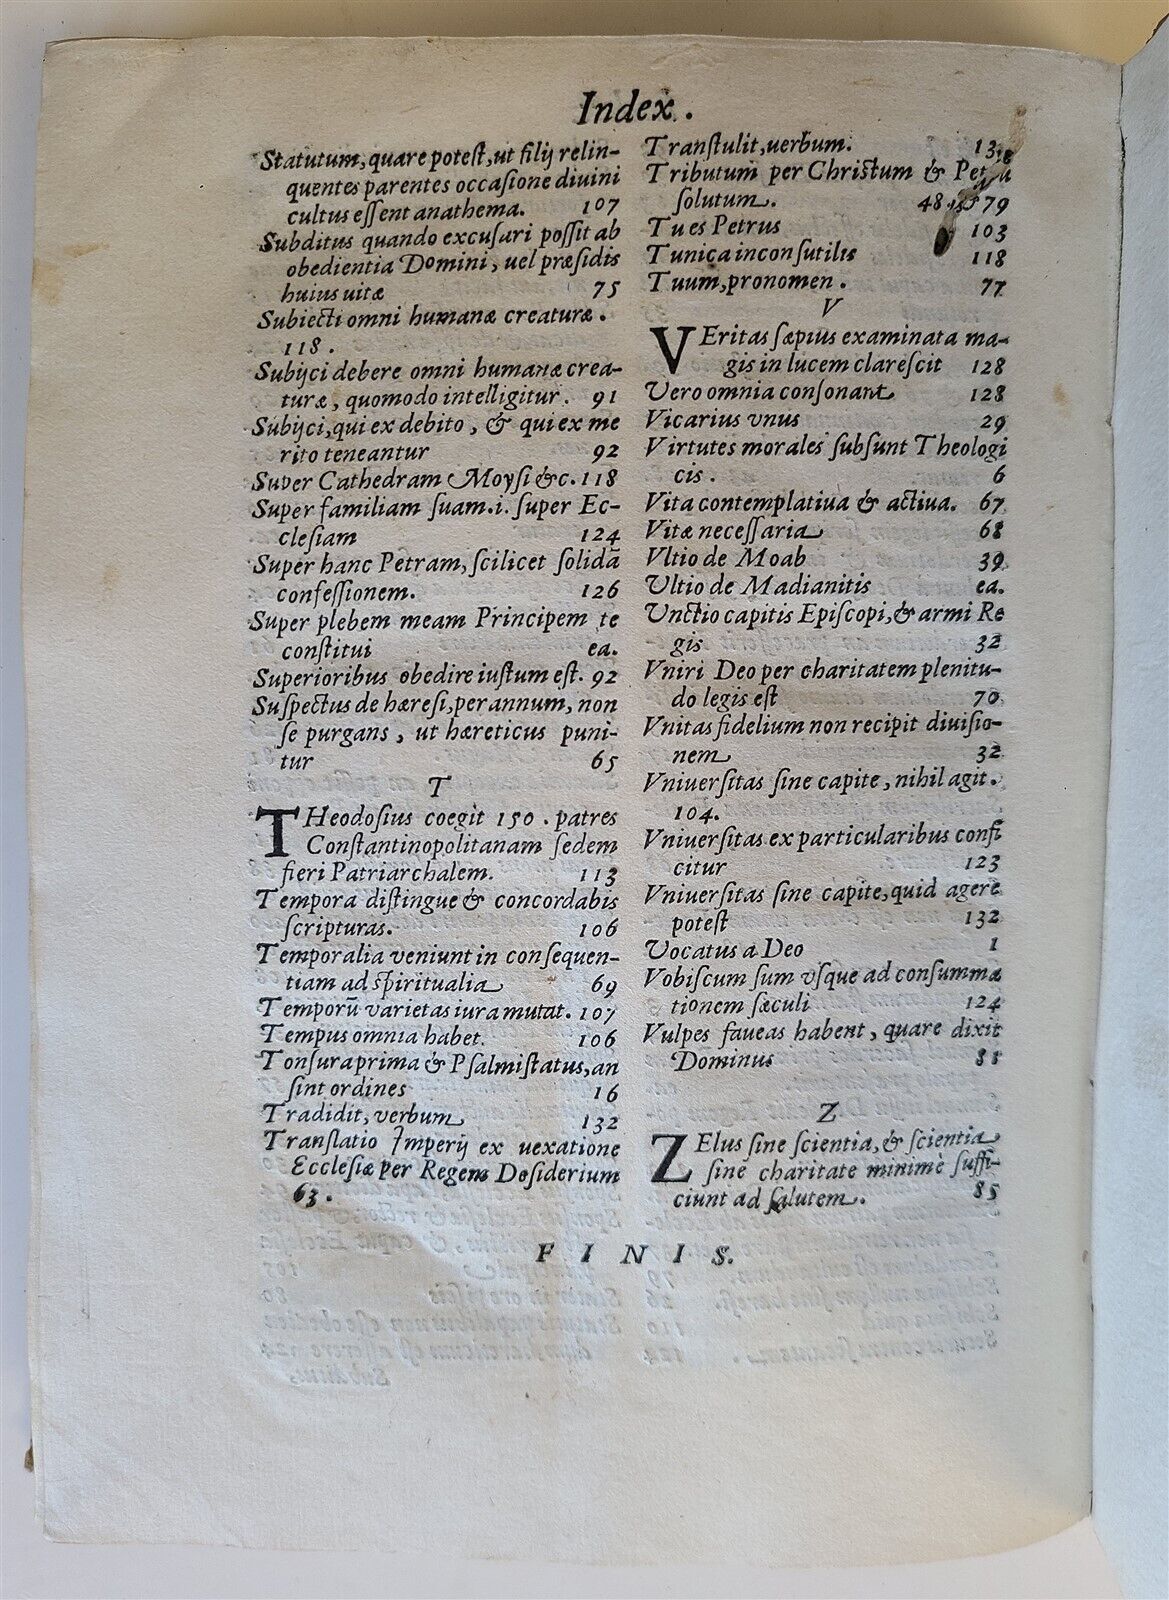 Index.
Statutum, quare poteſt, ut filij relin-
quentes parentes occaſione diuini
cultus eſſent anathema. 107
Subditus quando excuſari poſſit ab
obedientia Domini, uel præſidis
huius uitæ 75
Subiecti omni humanæ creaturæ.
118.
Subijci debere omni humanæ crea-
turæ, quomodo intelligitur. 91
Subijci, qui ex debito, & qui ex me
rito teneantur 92
Super Cathedram Moyſi &c. 118
Super familiam ſuam .i. ſuper Ec-
cleſiam 124
Super hanc Petram, ſcilicet ſolidā
confeſſionem. 126
Super plebem meam Principem te
conſtitui ea.
Superioribus obedire iuſtum eſt. 92
Suſpectus de hæreſi, per annum, non
ſe purgans, ut hæreticus puni-
tur 65
T
THeodoſius coegit 150. patres
Conſtantinopolitanam ſedem
fieri Patriarchalem. 113
Tempora diſtingue & concordabis
ſcripturas. 106
Temporalia veniunt in conſequen-
tiam ad ſpiritualia 69
Temporū varietas iura mutat. 107
Tempus omnia habet. 106
Tonſura prima & Pſalmiſtatus, an
ſint ordines 16
Tradidit, verbum 132
Tranſlatio Imperij ex uexatione
Eccleſiæ per Regem Deſiderium
63.
Tranſtulit, uerbum.
Tributum per Chriſtum &
ſolutum. 48 79
Tu es Petrus 103
Tunica inconſutilis 118
Tuum, pronomen. 77
V
VEritas ſæpius examinata ma-
gis in lucem clareſcit 128
Vero omnia conſonant 128
Vicarius vnus 29
Virtutes morales ſubſunt Theologi
cis. 6
Vita contemplatiua & actiua. 67
Vitæ neceſſaria 68
Vltio de Moab 39
Vltio de Madianitis ea.
Vnctio capitis Epiſcopi, & armi Re
gis 32
Vniri Deo per charitatem plenitu-
do legis eſt 70
Vnitas fidelium non recipit diuiſio-
nem 32
Vniuerſitas ſine capite, nihil agit.
104.
Vniuerſitas ex particularibus confi
citur 123
Vniuerſitas ſine capite, quid agere
poteſt 132
Vocatus a Deo 1
Vobiſcum ſum vſque ad conſumma
tionem ſæculi 124
Vulpes faueas habent, quare dixit
Dominus 88
Z
ZElus ſine ſcientia, & ſcientia
ſine charitate minimè ſuffi-
ciunt ad ſalutem. 85
FINIS.